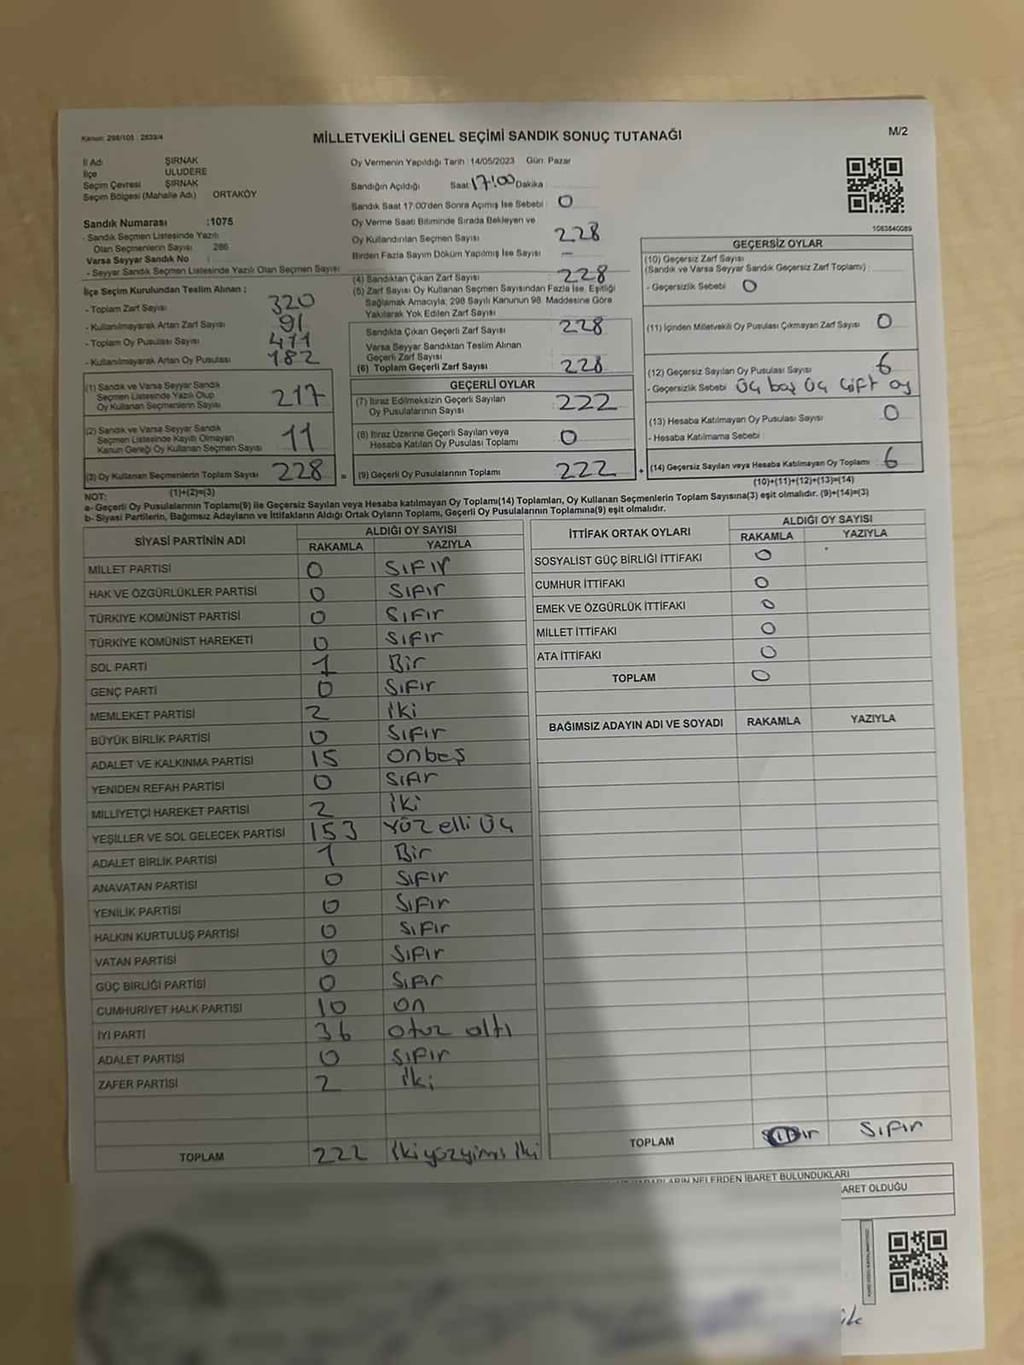 Kanun: 298/105 : 2839/4
MİLLETVEKİLİ GENEL SEÇİMİ SANDIK SONUÇ TUTANAĞI
M/2
İl Adı ŞIRNAK
İlçe ULUDERE
Seçim Çevresi ŞIRNAK
Seçim Bölgesi (Mahalle Adı) ORTAKÖY
Sandık Numarası :1075
- Sandık Seçmen Listesinde Yazılı
Olan Seçmenlerin Sayısı 286
Varsa Seyyar Sandık No :
- Seyyar Sandık Seçmen Listesinde Yazılı Olan Seçmen Sayısı
İlçe Seçim Kurulundan Teslim Alınan ;
- Toplam Zarf Sayısı 320
- Kullanılmayarak Artan Zarf Sayısı 91
- Toplam Oy Pusulası Sayısı 411
- Kullanılmayarak Artan Oy Pusulası 182
(1) Sandık ve Varsa Seyyar Sandık
Seçmen Listesinde Yazılı Olup
Oy Kullanan Seçmenlerin Sayısı 217
(2) Sandık ve Varsa Seyyar Sandık
Seçmen Listesinde Kayıtlı Olmayan
Kanun Gereği Oy Kullanan Seçmen Sayısı 11
(3) Oy Kullanan Seçmenlerin Toplam Sayısı 228 =
(1)+(2)=(3)
Oy Vermenin Yapıldığı Tarih :14/05/2023 Gün: Pazar
Sandığın Açıldığı Saat 17:00 Dakika :
Sandık Saat 17.00'den Sonra Açımış İse Sebebi : 0
Oy Verme Saati Bitiminde Sırada Bekleyen ve
Oy Kullandırılan Seçmen Sayısı 228
Birden Fazla Sayım Döküm Yapılmış İse Sayısı —
(4) Sandıktan Çıkan Zarf Sayısı 228
(5) Zarf Sayısı Oy Kullanan Seçmen Sayısından Fazla İse, Eşitliği
Sağlamak Amacıyla; 298 Sayılı Kanunun 98. Maddesine Göre
Yakılarak Yok Edilen Zarf Sayısı
Sandıkta Çıkan Geçerli Zarf Sayısı 228
Varsa Seyyar Sandıktan Teslim Alınan
Geçerli Zarf Sayısı
(6) Toplam Geçerli Zarf Sayısı 228
GEÇERLİ OYLAR
(7) İtiraz Edilmeksizin Geçerli Sayılan
Oy Pusulalarının Sayısı 222
(8) İtiraz Üzerine Geçerli Sayılan veya
Hesaba Katılan Oy Pusulası Toplamı 0
(9) Geçerli Oy Pusulalarının Toplamı 222 +
1063640089
GEÇERSİZ OYLAR
(10) Geçersiz Zarf Sayısı
(Sandık ve Varsa Seyyar Sandık Geçersiz Zarf Toplamı) :
- Geçersizlik Sebebi : 0
(11) İçinden Milletvekili Oy Pusulası Çıkmayan Zarf Sayısı 0
(12) Geçersiz Sayılan Oy Pusulası Sayısı 6
- Geçersizlik Sebebi Üç boş Üç çift oy
(13) Hesaba Katılmayan Oy Pusulası Sayısı 0
- Hesaba Katılmama Sebebi :
(14) Geçersiz Sayılan veya Hesaba Katılmayan Oy Toplamı 6
(10)+(11)+(12)+(13)=(14)
NOT:
a- Geçerli Oy Pusulalarının Toplamı(9) ile Geçersiz Sayılan veya Hesaba katılmayan Oy Toplamı(14) Toplamları, Oy Kullanan Seçmenlerin Toplam Sayısına(3) eşit olmalıdır. (9)+(14)=(3)
b- Siyasi Partilerin, Bağımsız Adayların ve İttifakların Aldığı Ortak Oyların Toplamı, Geçerli Oy Pusulalarının Toplamına(9) eşit olmalıdır.
SİYASİ PARTİNİN ADI ALDIĞI OY SAYISI
RAKAMLA YAZIYLA
MİLLET PARTİSİ 0 SIFIR
HAK VE ÖZGÜRLÜKLER PARTİSİ 0 SIFIR
TÜRKİYE KOMÜNİST PARTİSİ 0 SIFIR
TÜRKİYE KOMÜNİST HAREKETİ 0 SIFIR
SOL PARTİ 1 Bir
GENÇ PARTİ 0 SIFIR
MEMLEKET PARTİSİ 2 İki
BÜYÜK BİRLİK PARTİSİ 0 SIFIR
ADALET VE KALKINMA PARTİSİ 15 onbeş
YENİDEN REFAH PARTİSİ 0 SIFIR
MİLLİYETÇİ HAREKET PARTİSİ 2 İki
YEŞİLLER VE SOL GELECEK PARTİSİ 153 Yüz elli üç
ADALET BİRLİK PARTİSİ 1 Bir
ANAVATAN PARTİSİ 0 SIFIR
YENİLİK PARTİSİ 0 SIFIR
HALKIN KURTULUŞ PARTİSİ 0 SIFIR
VATAN PARTİSİ 0 SIFIR
GÜÇ BİRLİĞİ PARTİSİ 0 SIFIR
CUMHURİYET HALK PARTİSİ 10 on
İYİ PARTİ 36 otuz altı
ADALET PARTİSİ 0 SIFIR
ZAFER PARTİSİ 2 İki
TOPLAM 222 İkiyüzyirmi İki
İTTİFAK ORTAK OYLARI ALDIĞI OY SAYISI
RAKAMLA YAZIYLA
SOSYALİST GÜÇ BİRLİĞİ İTTİFAKI 0
CUMHUR İTTİFAKI 0
EMEK VE ÖZGÜRLÜK İTTİFAKI 0
MİLLET İTTİFAKI 0
ATA İTTİFAKI 0
TOPLAM 0
BAĞIMSIZ ADAYIN ADI VE SOYADI RAKAMLA YAZIYLA
TOPLAM SIFIR
NELERDEN İBARET BULUNDUKLARI
ARET OLDUĞU